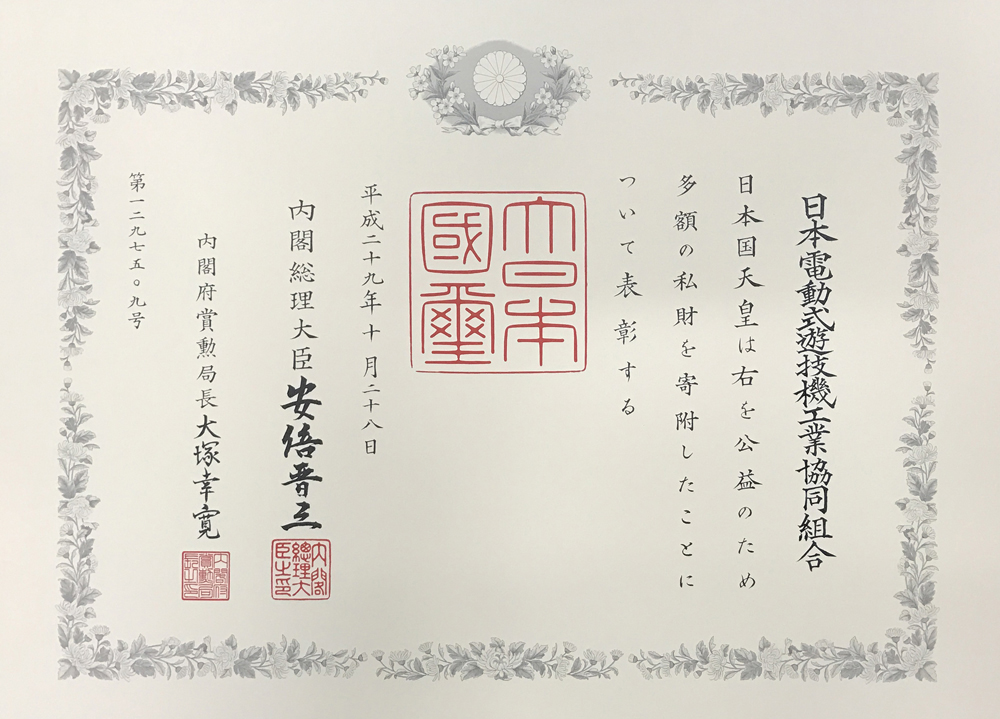 日本電動式遊技機工業協同組合
日本国天皇は右を公益のため
多額の私財を寄附したことに
ついて表彰する
大日本
國璽
平成二十九年十月二十八日
内閣総理大臣安倍晋三
内閣
總理大
臣之印
内閣府賞勲局長大塚幸寛
内閣府
賞勲局
長之印
第一二九七五〇九号